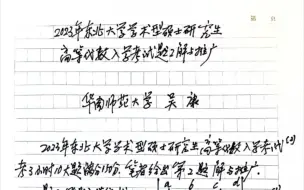 2023年东北大学学术型硕士研究生
高等代数入学考试题2解与推广
华南师范大学 吴康
2023年东北大学学术型硕士研究生高等代数入学考试
考3小时10大题满分150分.笔者给出第2题解与推广.
a b c d